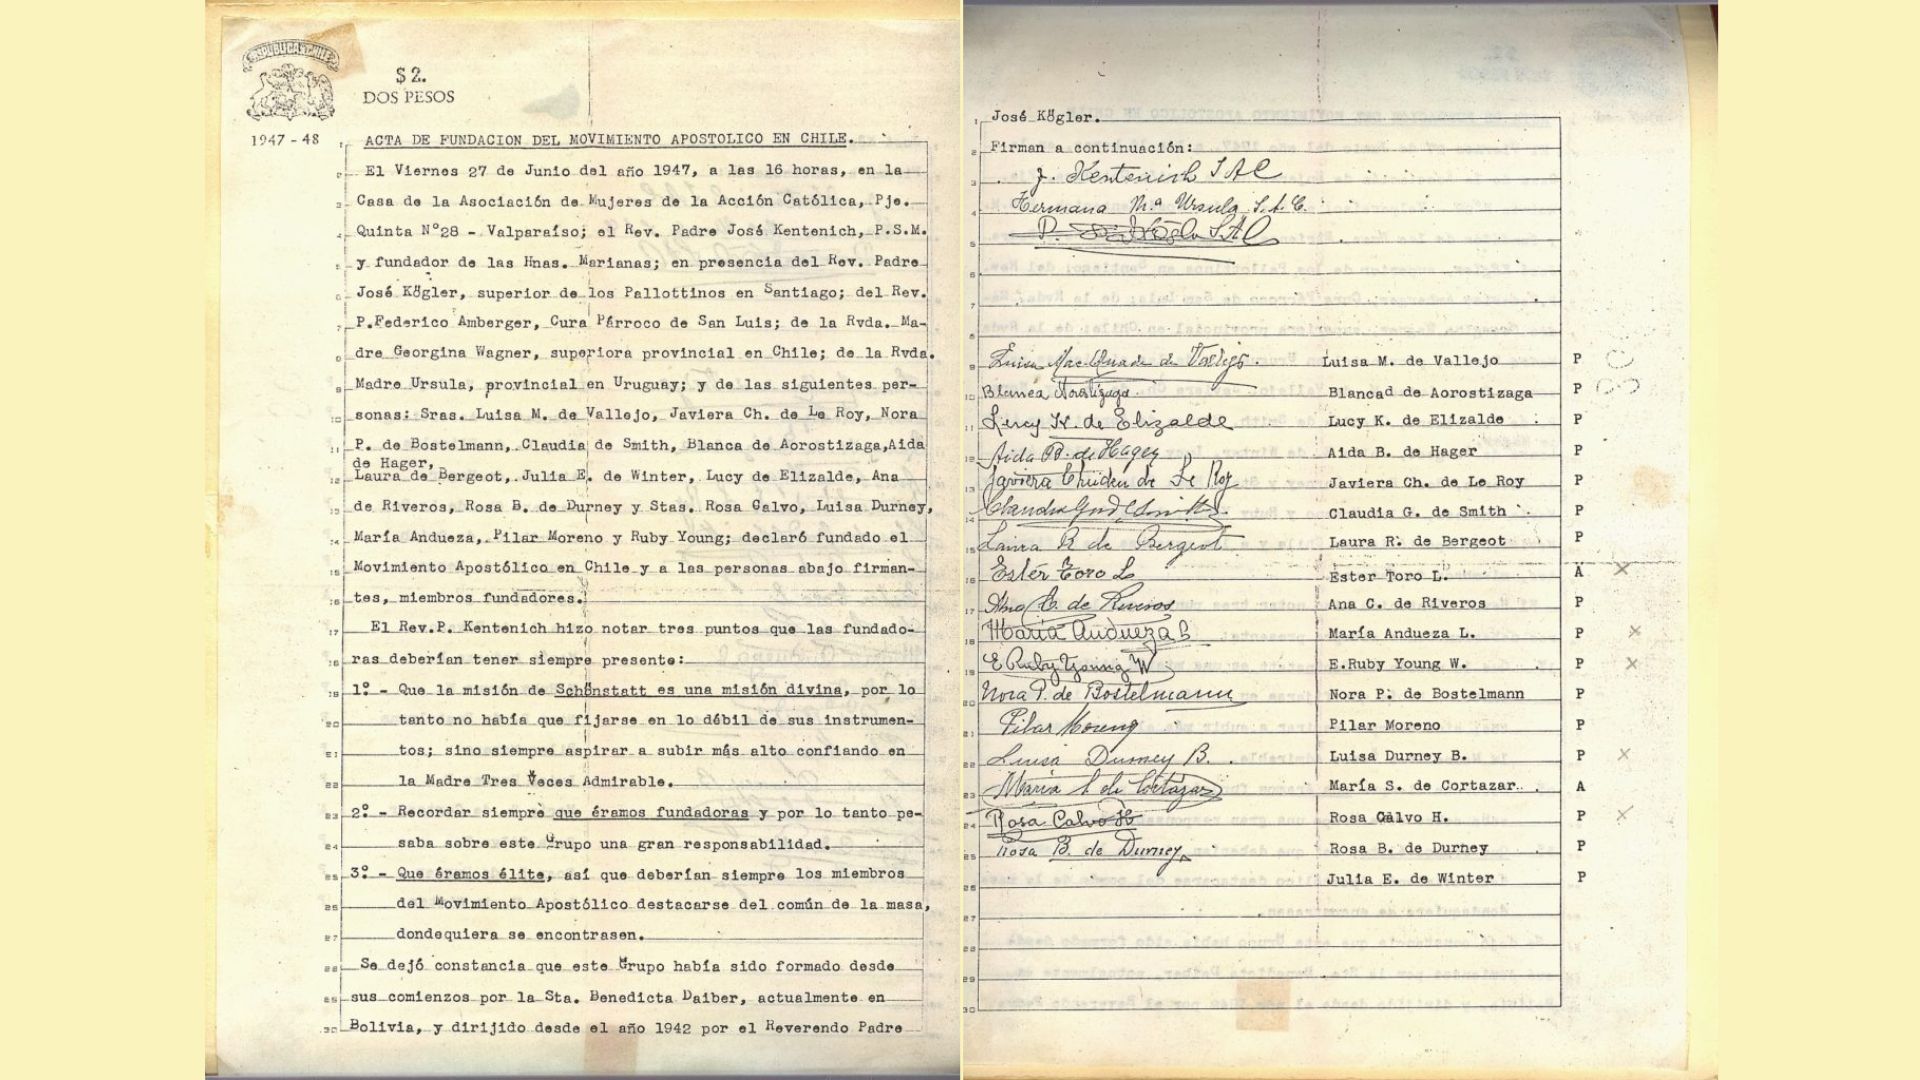 REPUBLICA DE CHILE
$ 2.
DOS PESOS
1947 - 48
ACTA DE FUNDACION DEL MOVIMIENTO APOSTOLICO EN CHILE.
El Viernes 27 de Junio del año 1947, a las 16 horas, en la
Casa de la Asociación de Mujeres de la Acción Católica, Pje.
Quinta N°28 - Valparaíso; el Rev. Padre José Kentenich, P.S.M.
y fundador de las Hnas. Marianas; en presencia del Rev. Padre
José Kögler, superior de los Pallottinos en Santiago; del Rev.
P.Federico Amberger, Cura Párroco de San Luis; de la Rvda. Ma-
dre Georgina Wagner, superiora provincial en Chile; de la Rvda.
Madre Ursula, provincial en Uruguay; y de las siguientes per-
sonas: Sras. Luisa M. de Vallejo, Javiera Ch. de Le Roy, Nora
P. de Bostelmann, Claudia de Smith, Blanca de Aorostizaga,Aida
de Hager,
Laura de Bergeot, Julia E. de Winter, Lucy de Elizalde, Ana
de Riveros, Rosa B. de Durney y Stas. Rosa Calvo, Luisa Durney,
María Andueza, Pilar Moreno y Ruby Young; declaró fundado el
Movimiento Apostólico en Chile y a las personas abajo firman-
tes, miembros fundadores.
El Rev.P. Kentenich hizo notar tres puntos que las fundado-
ras deberían tener siempre presente:
1º - Que la misión de Schönstatt es una misión divina, por lo
tanto no había que fijarse en lo débil de sus instrumen-
tos; sino siempre aspirar a subir más alto confiando en
la Madre Tres Veces Admirable.
2º - Recordar siempre que éramos fundadoras y por lo tanto pe-
saba sobre este Grupo una gran responsabilidad.
3º - Que éramos élite, así que deberían siempre los miembros
del Movimiento Apostólico destacarse del común de la masa,
dondequiera se encontrasen.
Se dejó constancia que este Grupo había sido formado desde
sus comienzos por la Sta. Benedicta Daiber, actualmente en
Bolivia, y dirijido desde el año 1942 por el Reverendo Padre
José Kögler.
Firman a continuación:
J. Kentenich SAC
Hermana Mª Ursula S.A.C.
P. Kögler SAC
Luisa Mac-Quade de Vallejo. Luisa M. de Vallejo P
Blanca Aorostizaga Blancad de Aorostizaga P
Lucy K. de Elizalde Lucy K. de Elizalde P
Aida B. de Hager Aida B. de Hager P
Javiera Chuden de Le Roy Javiera Ch. de Le Roy P
Claudia G. de Smith Claudia G. de Smith P
Laura R de Bergeot Laura R. de Bergeot P
Ester Toro L Ester Toro L. A x
Ana C. de Riveros Ana C. de Riveros P
María Andueza L María Andueza L. P x
E Ruby Young W E.Ruby Young W. P x
Nora P. de Bostelmann Nora P. de Bostelmann P
Pilar Moreno Pilar Moreno P
Luisa Durney B. Luisa Durney B. P x
María S de Cortázar María S. de Cortazar. A
Rosa Calvo H Rosa Calvo H. P x
Rosa B. de Durney Rosa B. de Durney P
Julia E. de Winter P